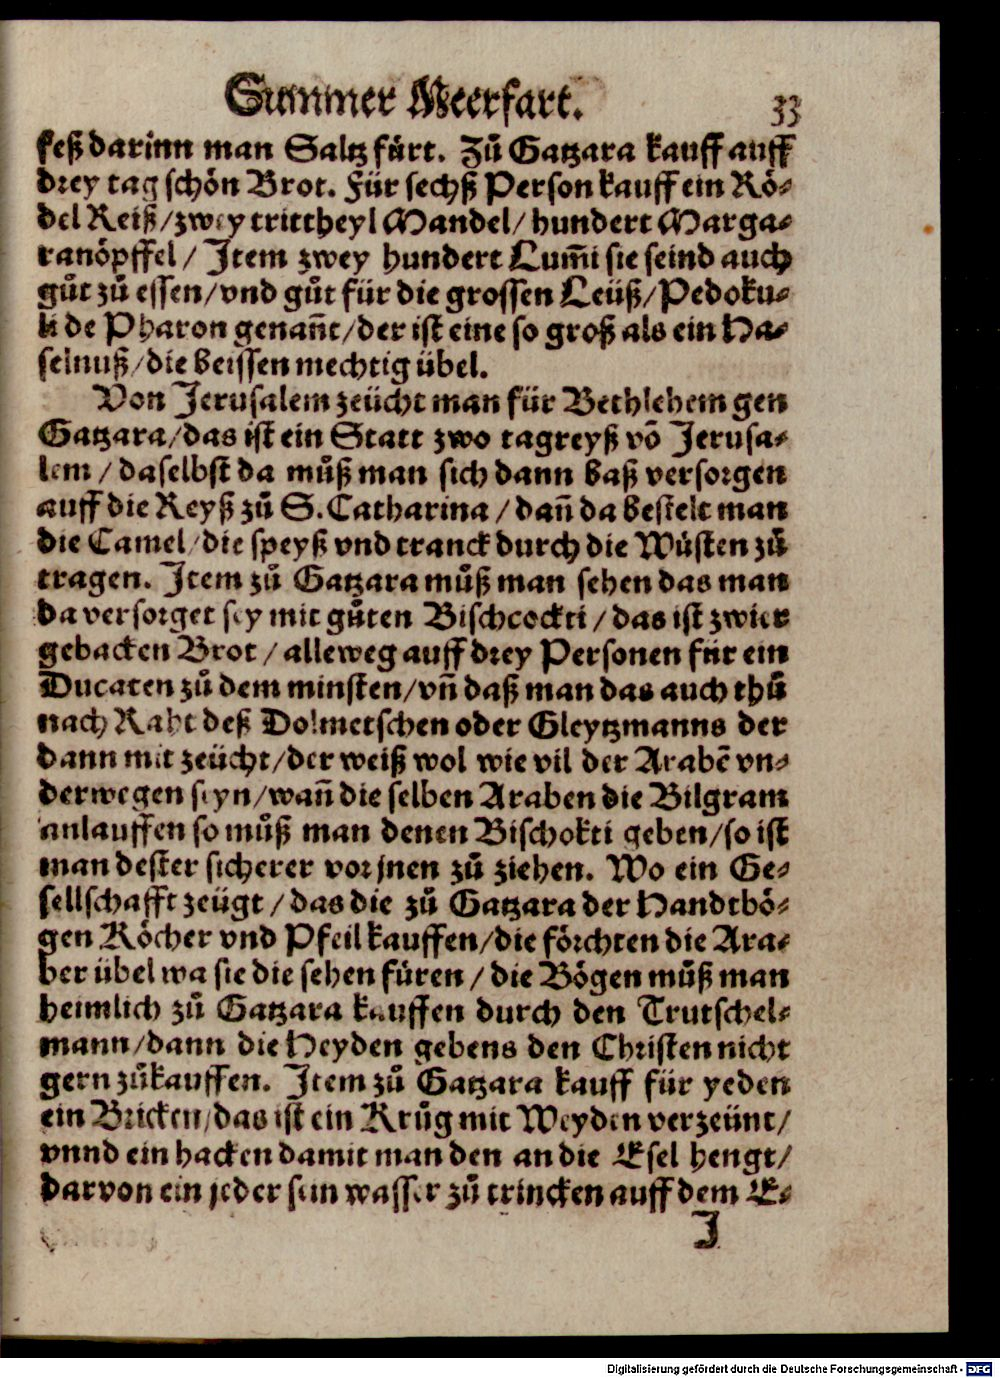 Summer Meerfart. 33
feß darinn man Saltz fürt. Zů Gatzara kauff auff
drey tag schön Brot. Für sechß Person kauff ein Rö-
del Reiß/zwey trittheyl Mandel/hundert Marga-
ranöpffel/ Item zwey hundert Lum̃i sie seind auch
gůt zů essen/vnd gůt für die grossen Leüß/Pedoku-
li de Pharon genañt/der ist eine so groß als ein Ha-
selnuß/die beissen mechtig übel.
Von Jerusalem zeücht man für Bethlehem gen
Gatzara/das ist ein Statt zwo tagreyß võ Jerusa-
lem/daselbst da můß man sich dann baß versorgen
auff die Reyß zů S. Catharina/dañ da bestelt man
die Camel/die speyß vnd tranck durch die Wüsten zů
tragen. Item zů Gatzara můß man sehen das man
da versorget sey mit gůten Bischcockti/das ist zwier
gebacken Brot/alleweg auff drey Personen für ein
Ducaten zů dem minsten/vñ daß man das auch thů
nach Raht deß Dolmetschen oder Gleytzmanns der
dann mit zeücht/der weiß wol wie vil der Arabẽ vn-
derwegen seyn/wañ die selben Araben die Bilgram
anlauffen so můß man denen Bischokti geben/so ist
man dester sicherer vor jnen zů ziehen. Wo ein Ge-
sellschafft zeügt/das die zů Gatzara der Handtbö-
gen Köcher vnd Pfeil kauffen/die förchten die Ara-
ber übel wa sie die sehen füren/die Bögen můß man
heimlich zů Gatzara kauffen durch den Trutschel-
mann/dann die Heyden gebens den Christen nicht
gern zůkauffen. Item zů Gatzara kauff für yeden
ein Bricken/das ist ein Krůg mit Weyden verzeünt/
vnnd ein hacken damit man den an die Esel hengt/
darvon ein jeder sein wasser zů trincken auff dem E-
J
Digitalisierung gefördert durch die Deutsche Forschungsgemeinschaft - DFG